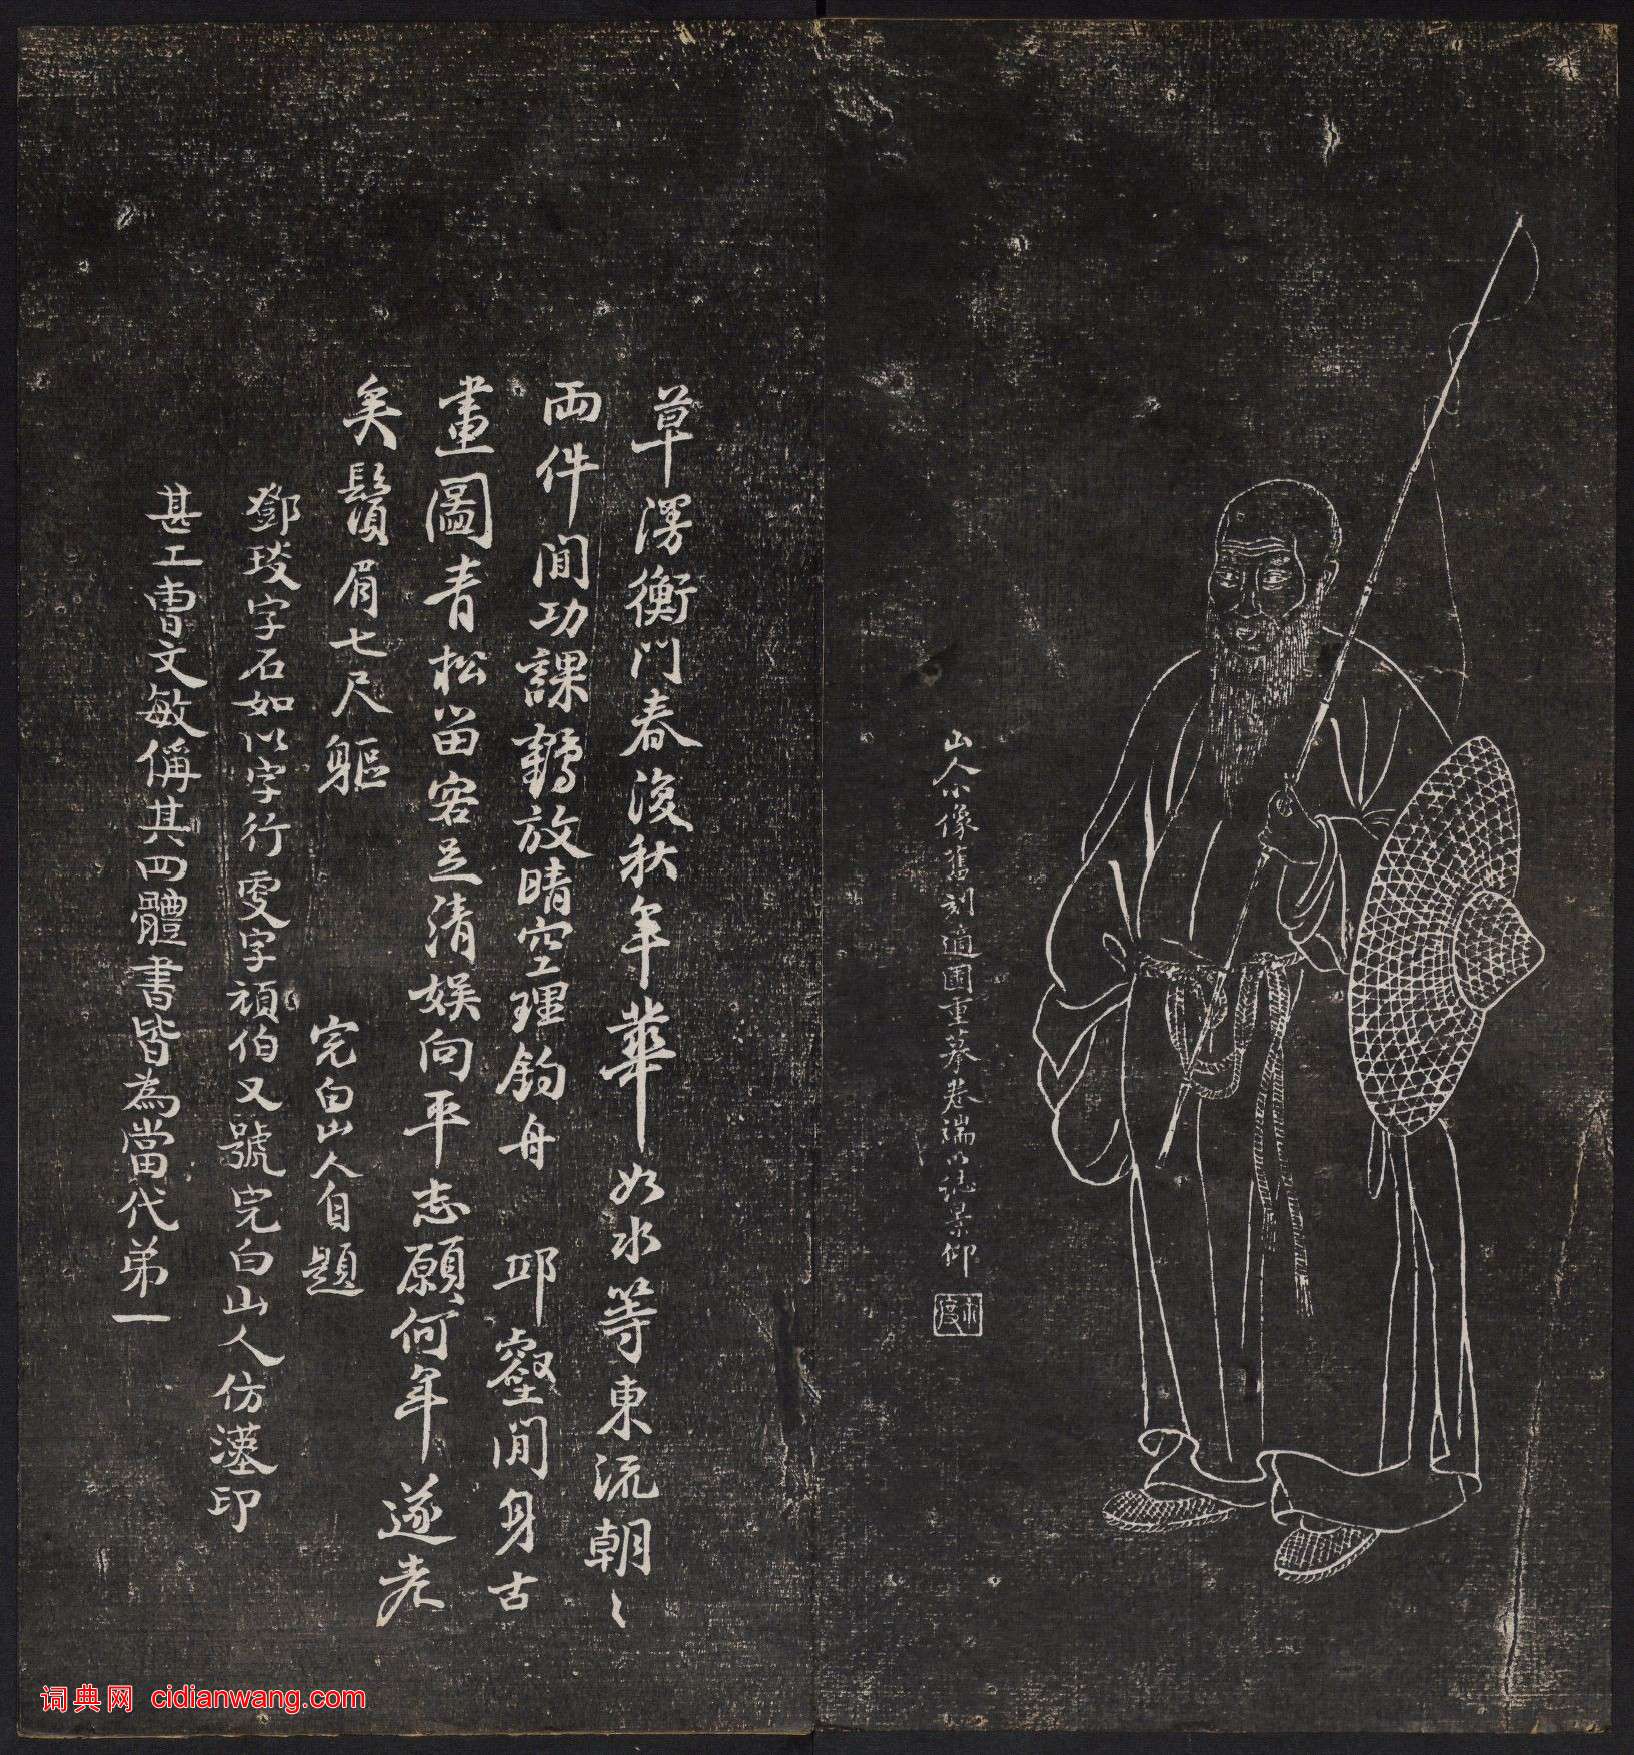 山人小像舊刻適圃重摹卷端以誌景仰
草澤衡門春復秋年華如水等東流朝〻
兩件閒功課鶴放晴空理釣舟 邱壑閒身古
畫圖青松留客足清娛向平志願何年遂老
矣鬚眉七尺軀
完白山人自題
鄧琰字石如以字行更字頑伯又號完白山人仿漢印
甚工曹文敏稱其四體書皆為當代弟一
词典网 cidianwang.com